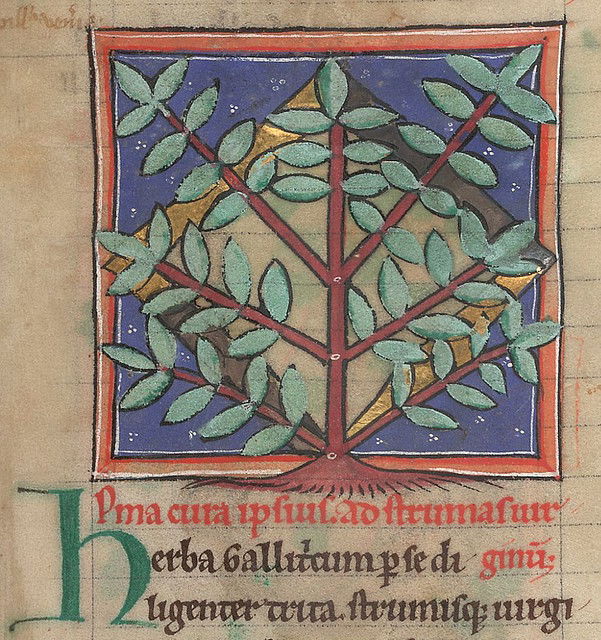 Pma cura ipsius. ad strumas uir
herba Gallitricum p se di ginū;
ligenter trita. strumisq; uirgi